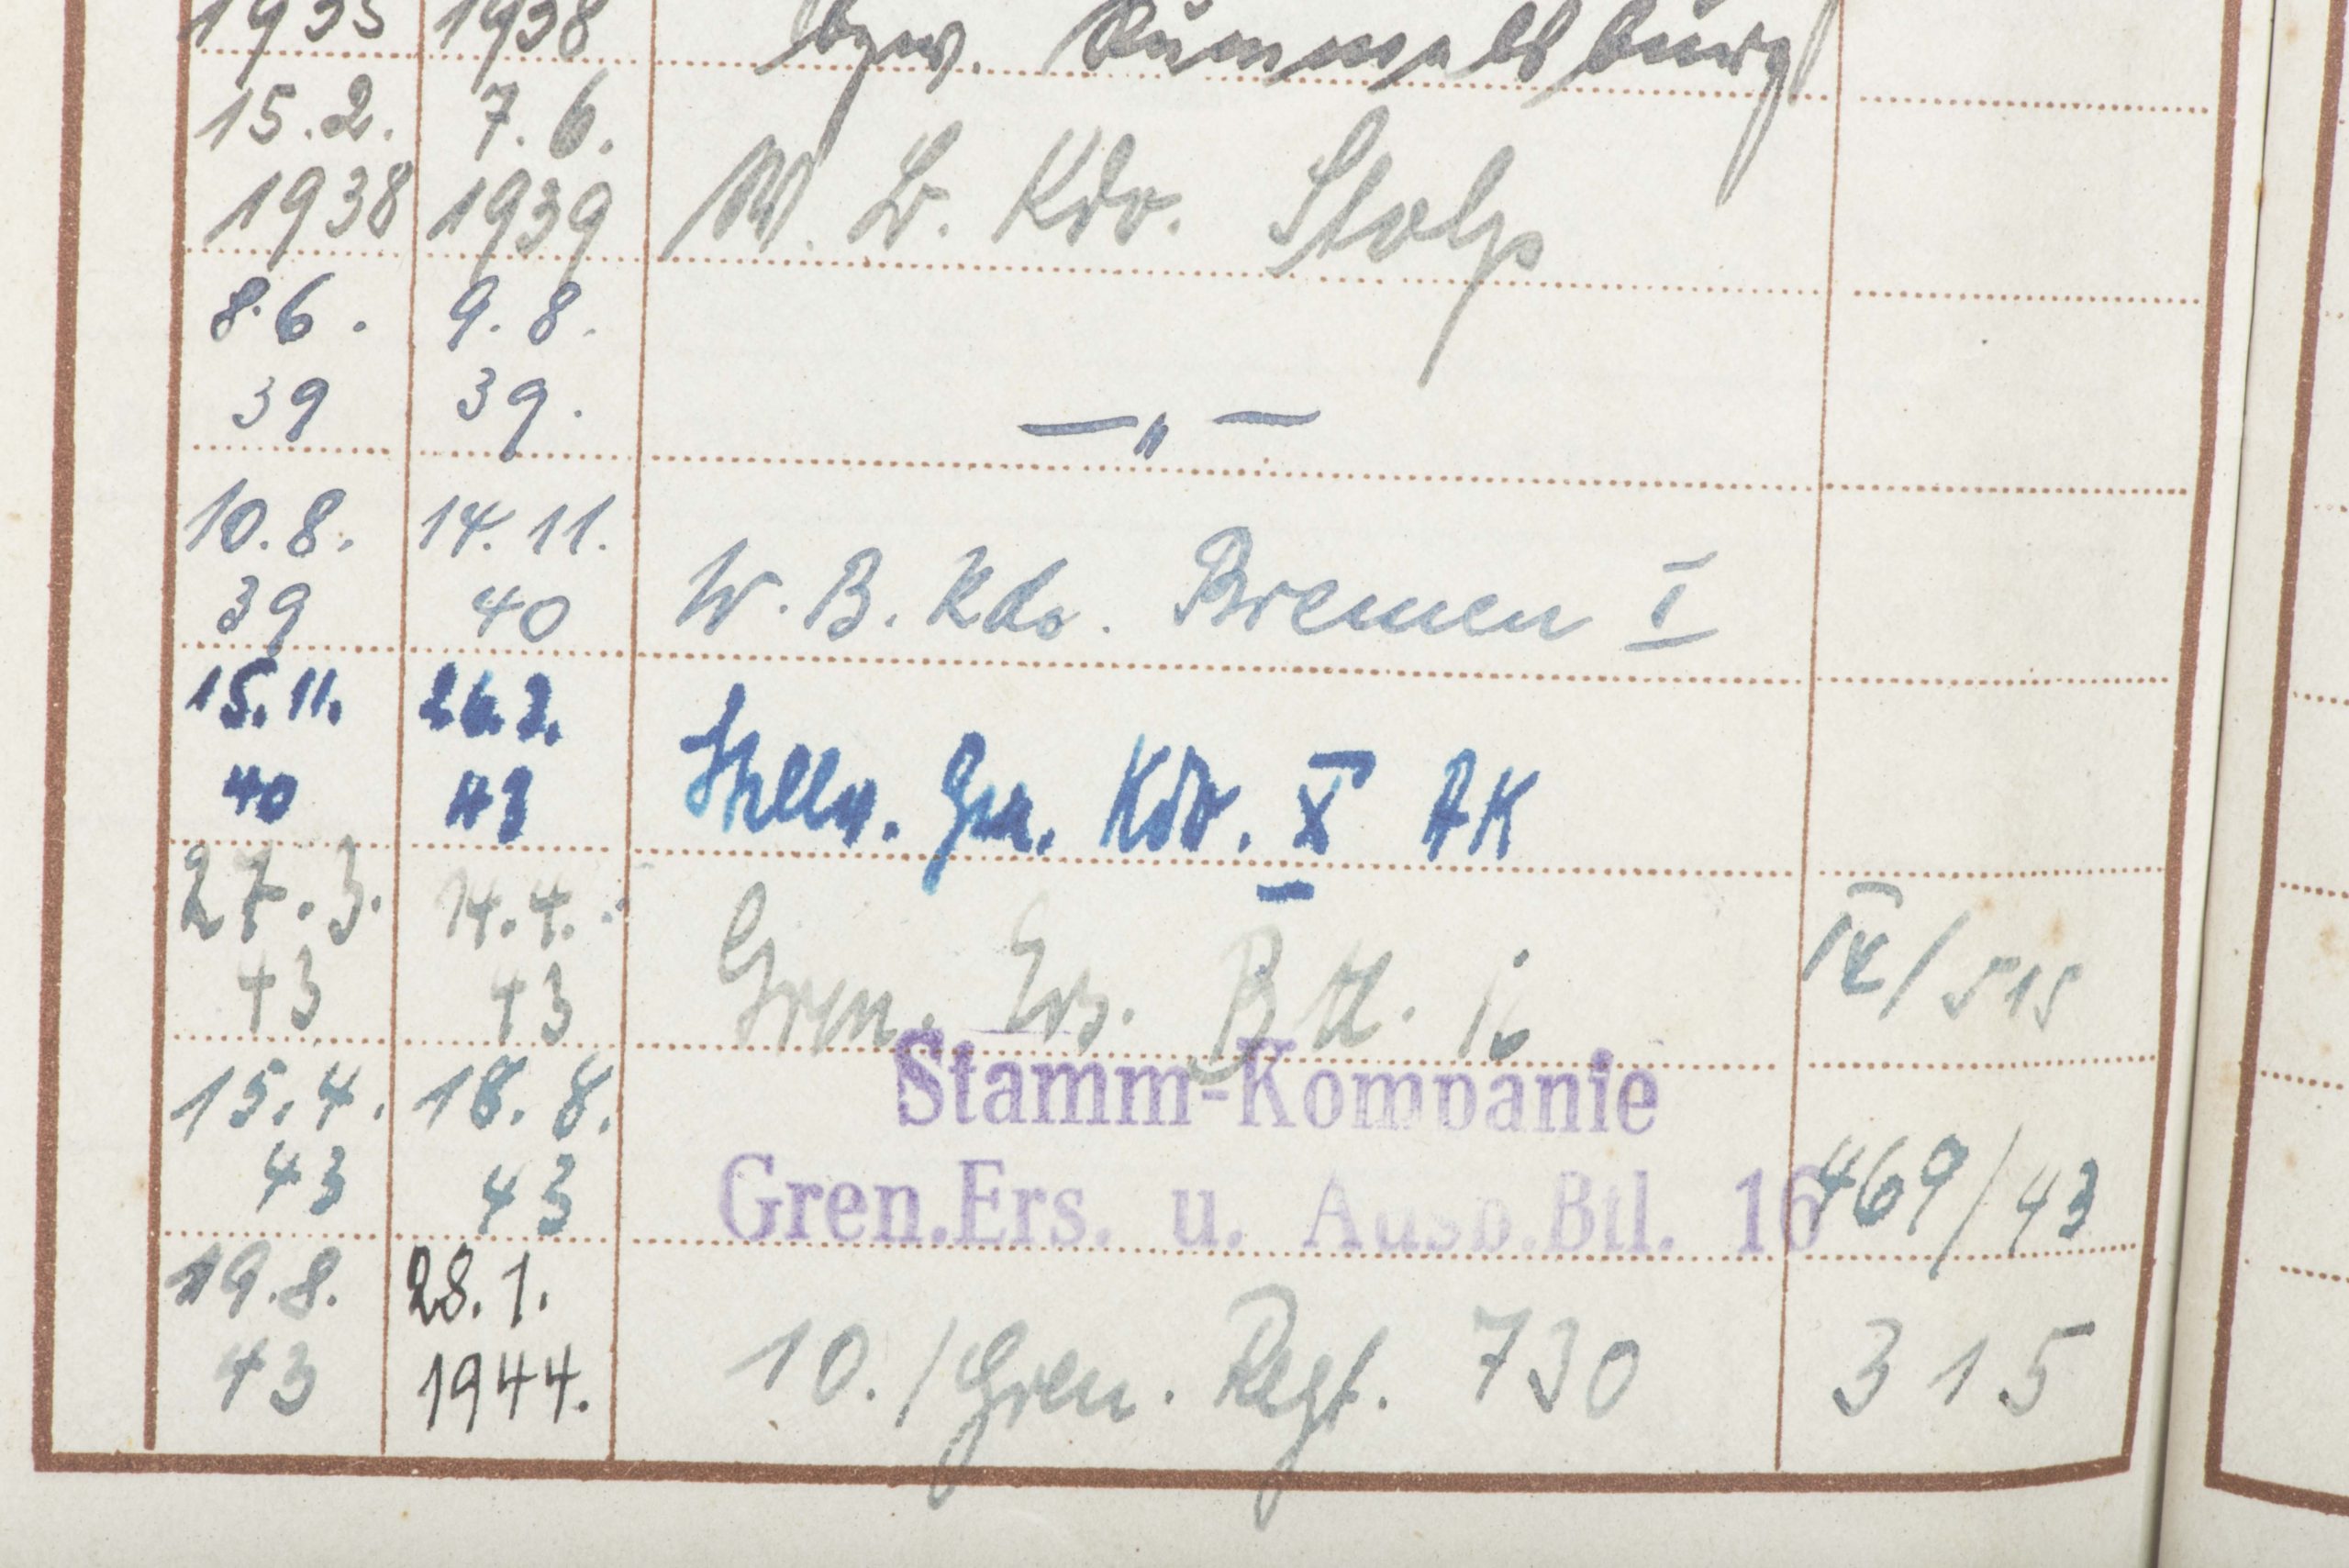 1935 1938 bzw. Rummelsburg
15.2. 7.6.
1938 1939 W. B. Kdo. Stolp
8.6. 9.8.
39 39. — „ —
10.8. 14.11.
39 40 W. B. Kdo. Bremen I
15.11. 26.3.
40 43 Stellv. Gen. Kdo. X AK
27.3. 14.4.
43 43 Gren. Ers. Btl. 16 IV/515
15.4. 18.8. Stamm-Kompanie
43 43 Gren.Ers. u. Ausb.Btl. 16 469/43
19.8. 28.1.
43 1944. 10./Gren. Regt. 730 315